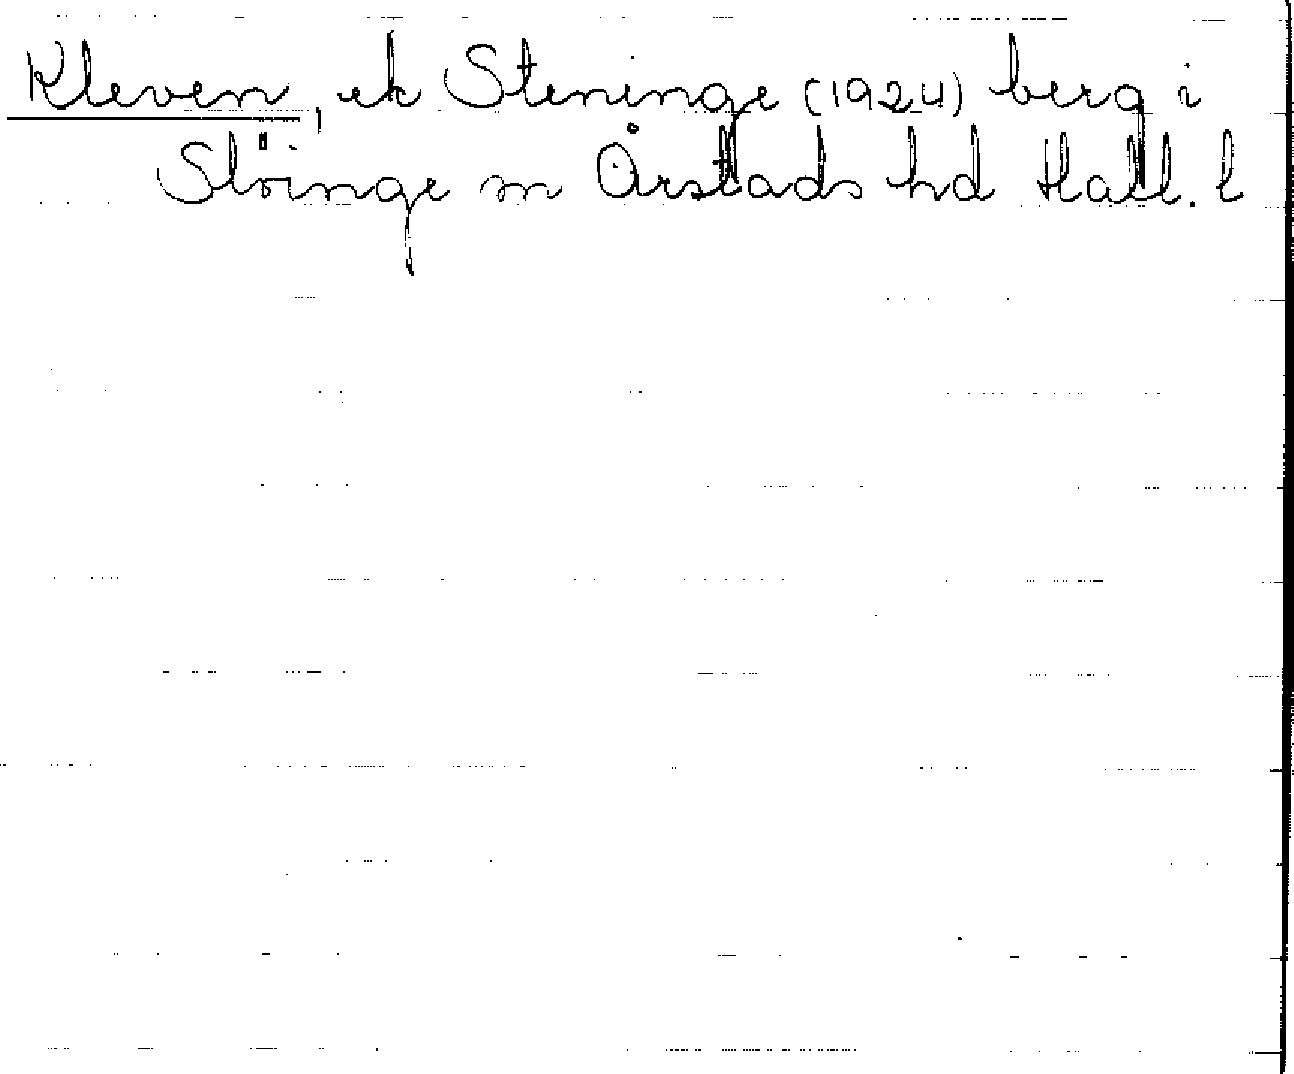 Kleven, ek Steninge (1924) berg i
Slöinge sn Årstads hd Hall. l